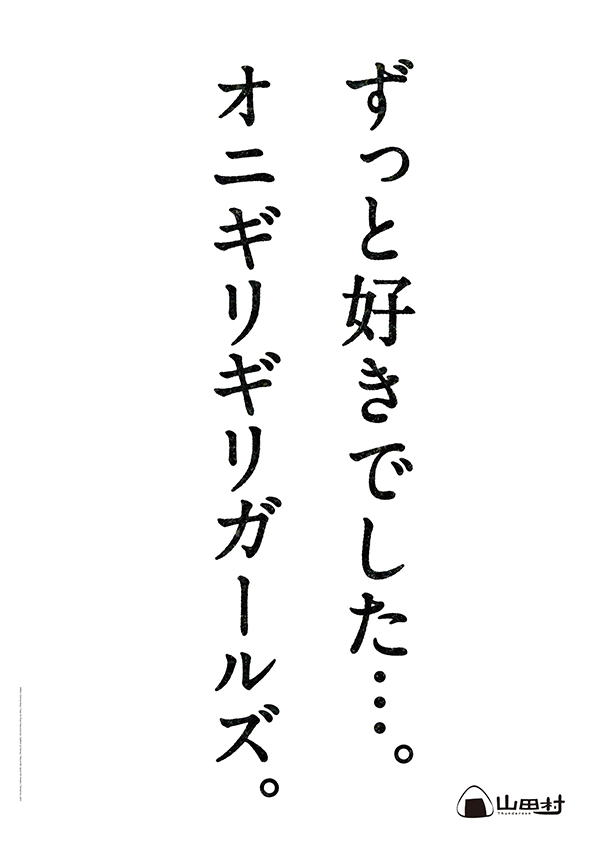 ずっと好きでした…。
オニギリギリガールズ。
山田村
Thunderson